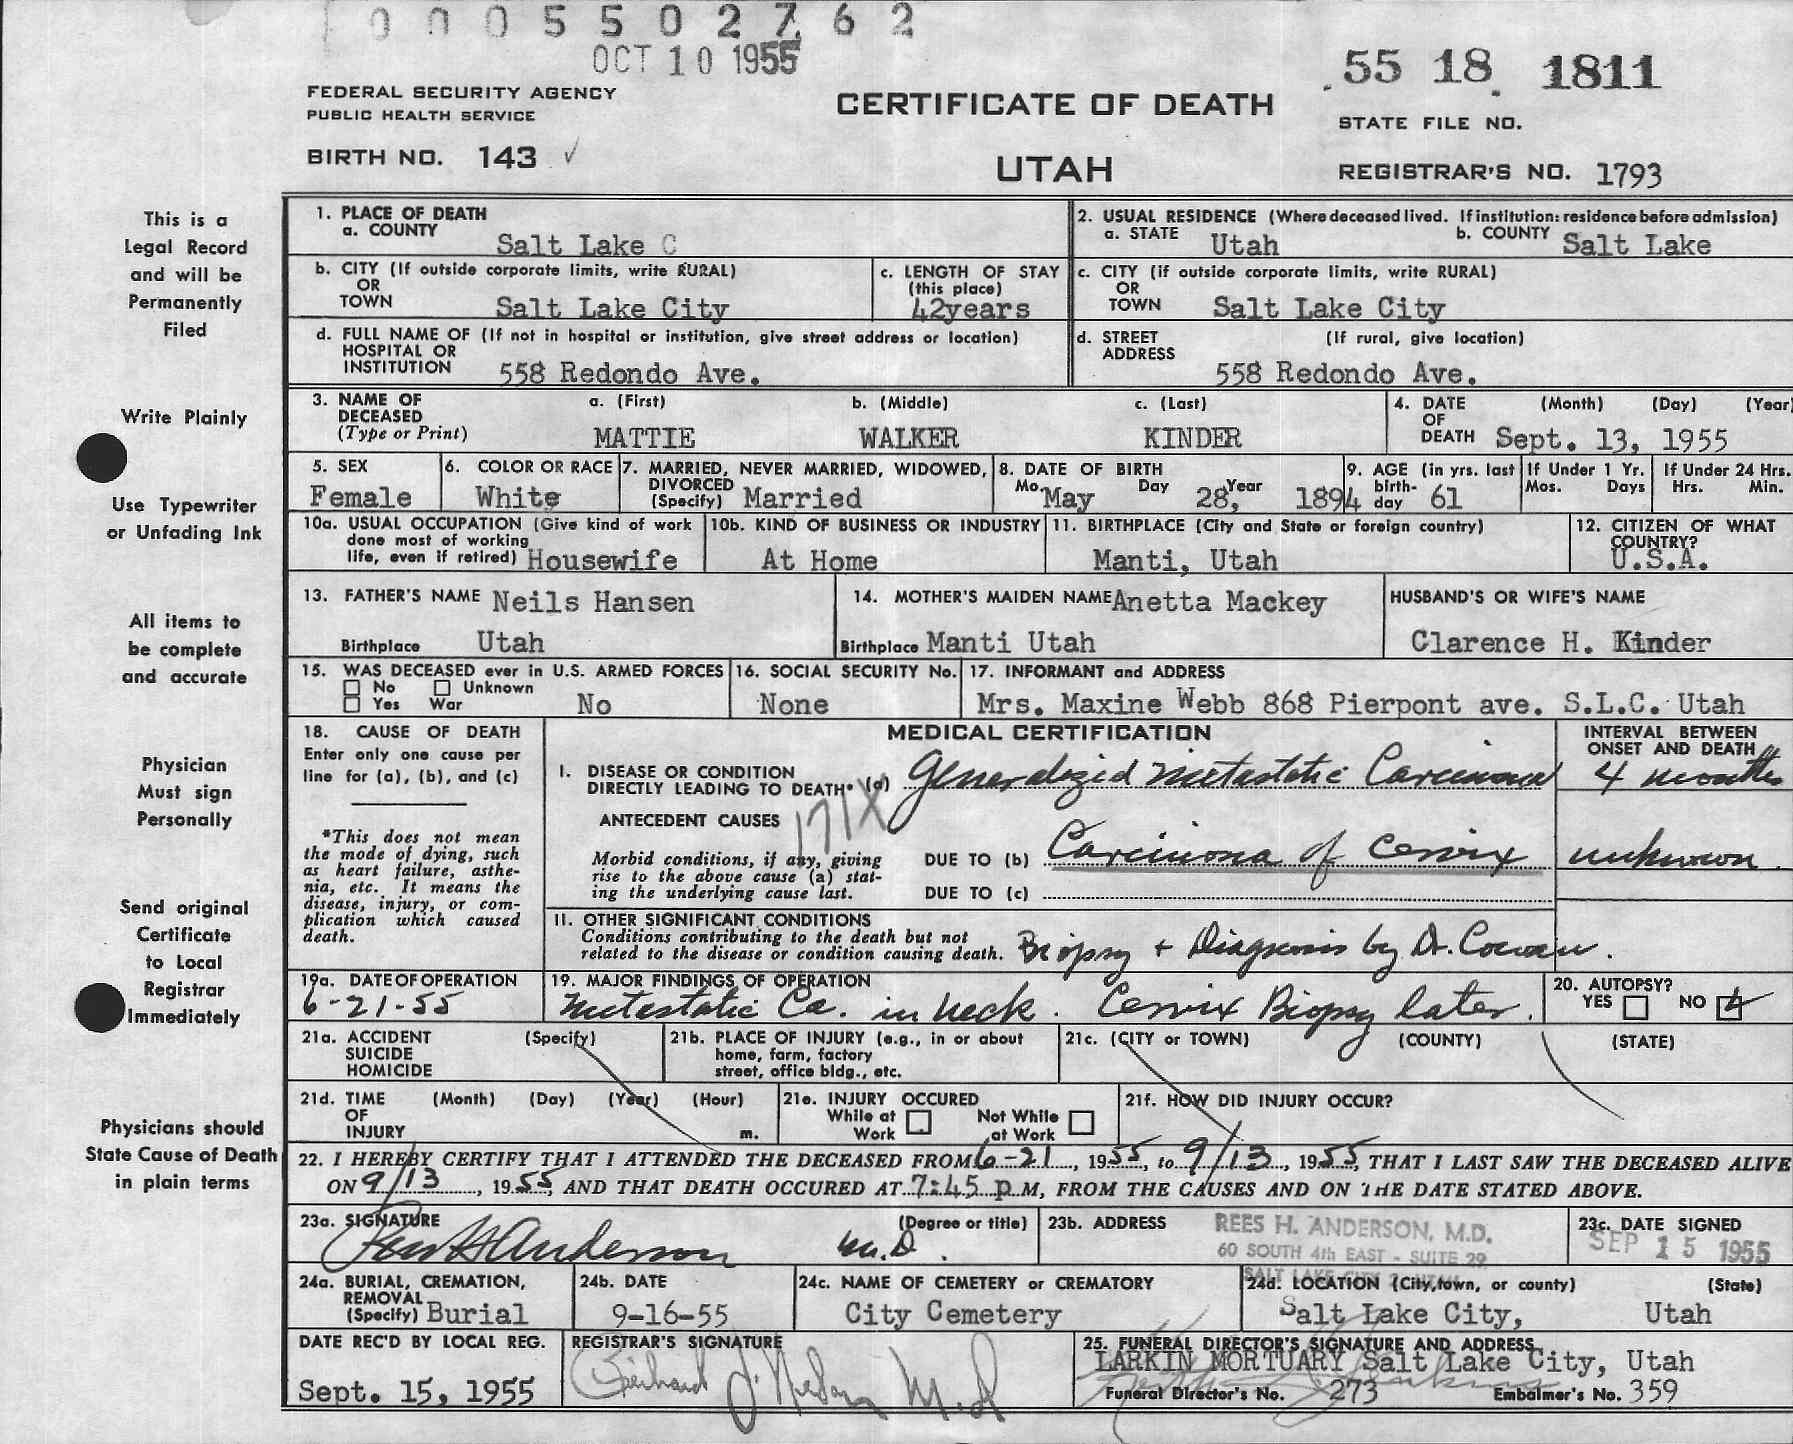 0 0 0 5 5 0 2 7 6 2
OCT 10 1955
55 18 1811
FEDERAL SECURITY AGENCY
PUBLIC HEALTH SERVICE
CERTIFICATE OF DEATH
STATE FILE NO.
BIRTH NO. 143 ✓
UTAH
REGISTRAR'S NO. 1793
This is a
Legal Record
and will be
Permanently
Filed
Write Plainly
Use Typewriter
or Unfading Ink
All items to
be complete
and accurate
Physician
Must sign
Personally
Send original
Certificate
to Local
Registrar
Immediately
Physicians should
State Cause of Death
in plain terms
1. PLACE OF DEATH
a. COUNTY Salt Lake C
2. USUAL RESIDENCE (Where deceased lived. If institution: residence before admission)
a. STATE Utah b. COUNTY Salt Lake
b. CITY (If outside corporate limits, write RURAL)
OR
TOWN Salt Lake City
c. LENGTH OF STAY
(this place)
42years
c. CITY (if outside corporate limits, write RURAL)
OR
TOWN Salt Lake City
d. FULL NAME OF (If not in hospital or institution, give street address or location)
HOSPITAL OR
INSTITUTION 558 Redondo Ave.
d. STREET (If rural, give location)
ADDRESS
558 Redondo Ave.
3. NAME OF DECEASED (Type or Print)
a. (First) b. (Middle) c. (Last)
MATTIE WALKER KINDER
4. DATE OF DEATH (Month) (Day) (Year)
Sept. 13, 1955
5. SEX
Female
6. COLOR OR RACE
White
7. MARRIED, NEVER MARRIED, WIDOWED,
DIVORCED
(Specify) Married
8. DATE OF BIRTH
Mo. Day Year
May 28, 1894
9. AGE (in yrs. last
birth-
day 61
If Under 1 Yr.
Mos. Days
If Under 24 Hrs.
Hrs. Min.
10a. USUAL OCCUPATION (Give kind of work
done most of working
life, even if retired) Housewife
10b. KIND OF BUSINESS OR INDUSTRY
At Home
11. BIRTHPLACE (City and State or foreign country)
Manti, Utah
12. CITIZEN OF WHAT
COUNTRY?
U.S.A.
13. FATHER'S NAME Neils Hansen
Birthplace Utah
14. MOTHER'S MAIDEN NAME Anetta Mackey
Birthplace Manti Utah
HUSBAND'S OR WIFE'S NAME
Clarence H. Kinder
15. WAS DECEASED ever in U.S. ARMED FORCES
No Unknown
Yes War No
16. SOCIAL SECURITY No.
None
17. INFORMANT and ADDRESS
Mrs. Maxine Webb 868 Pierpont ave. S.L.C. Utah
18. CAUSE OF DEATH
Enter only one cause per
line for (a), (b), and (c)
*This does not mean
the mode of dying, such
as heart failure, asthe-
nia, etc. It means the
disease, injury, or com-
plication which caused
death.
MEDICAL CERTIFICATION
INTERVAL BETWEEN
ONSET AND DEATH
I. DISEASE OR CONDITION
DIRECTLY LEADING TO DEATH* (a) Generalized metastatic Carcinoma 4 months
171X
ANTECEDENT CAUSES
Morbid conditions, if any, giving
rise to the above cause (a) stat-
ing the underlying cause last.
DUE TO (b) Carcinoma of Cervix unknown
DUE TO (c)
II. OTHER SIGNIFICANT CONDITIONS
Conditions contributing to the death but not
related to the disease or condition causing death. Biopsy + Diagnosis by Dr. Cowan.
19a. DATE OF OPERATION
6-21-55
19. MAJOR FINDINGS OF OPERATION
Metastatic Ca. in neck. Cervix Biopsy later.
20. AUTOPSY?
YES NO
21a. ACCIDENT (Specify)
SUICIDE
HOMICIDE
21b. PLACE OF INJURY (e.g., in or about
home, farm, factory
street, office bldg., etc.
21c. (CITY or TOWN) (COUNTY) (STATE)
21d. TIME (Month) (Day) (Year) (Hour)
OF
INJURY m.
21e. INJURY OCCURED
While at Work Not While at Work
21f. HOW DID INJURY OCCUR?
22. I HEREBY CERTIFY THAT I ATTENDED THE DECEASED FROM 6-21, 1955, to 9/13, 1955, THAT I LAST SAW THE DECEASED ALIVE
ON 9/13, 1955, AND THAT DEATH OCCURED AT 7:45 P.M, FROM THE CAUSES AND ON THE DATE STATED ABOVE.
23a. SIGNATURE (Degree or title)
Rees H Anderson M.D.
23b. ADDRESS
REES H. ANDERSON, M.D.
60 SOUTH 4th EAST - SUITE 29
SALT LAKE CITY
23c. DATE SIGNED
SEP 15 1955
24a. BURIAL, CREMATION,
REMOVAL
(Specify) Burial
24b. DATE
9-16-55
24c. NAME OF CEMETERY or CREMATORY
City Cemetery
24d. LOCATION (City, town, or county) (State)
Salt Lake City, Utah
DATE REC'D BY LOCAL REG.
Sept. 15, 1955
REGISTRAR'S SIGNATURE
M.D
25. FUNERAL DIRECTOR'S SIGNATURE AND ADDRESS
LARKIN MORTUARY Salt Lake City, Utah
Funeral Director's No. 273 Embalmer's No. 359